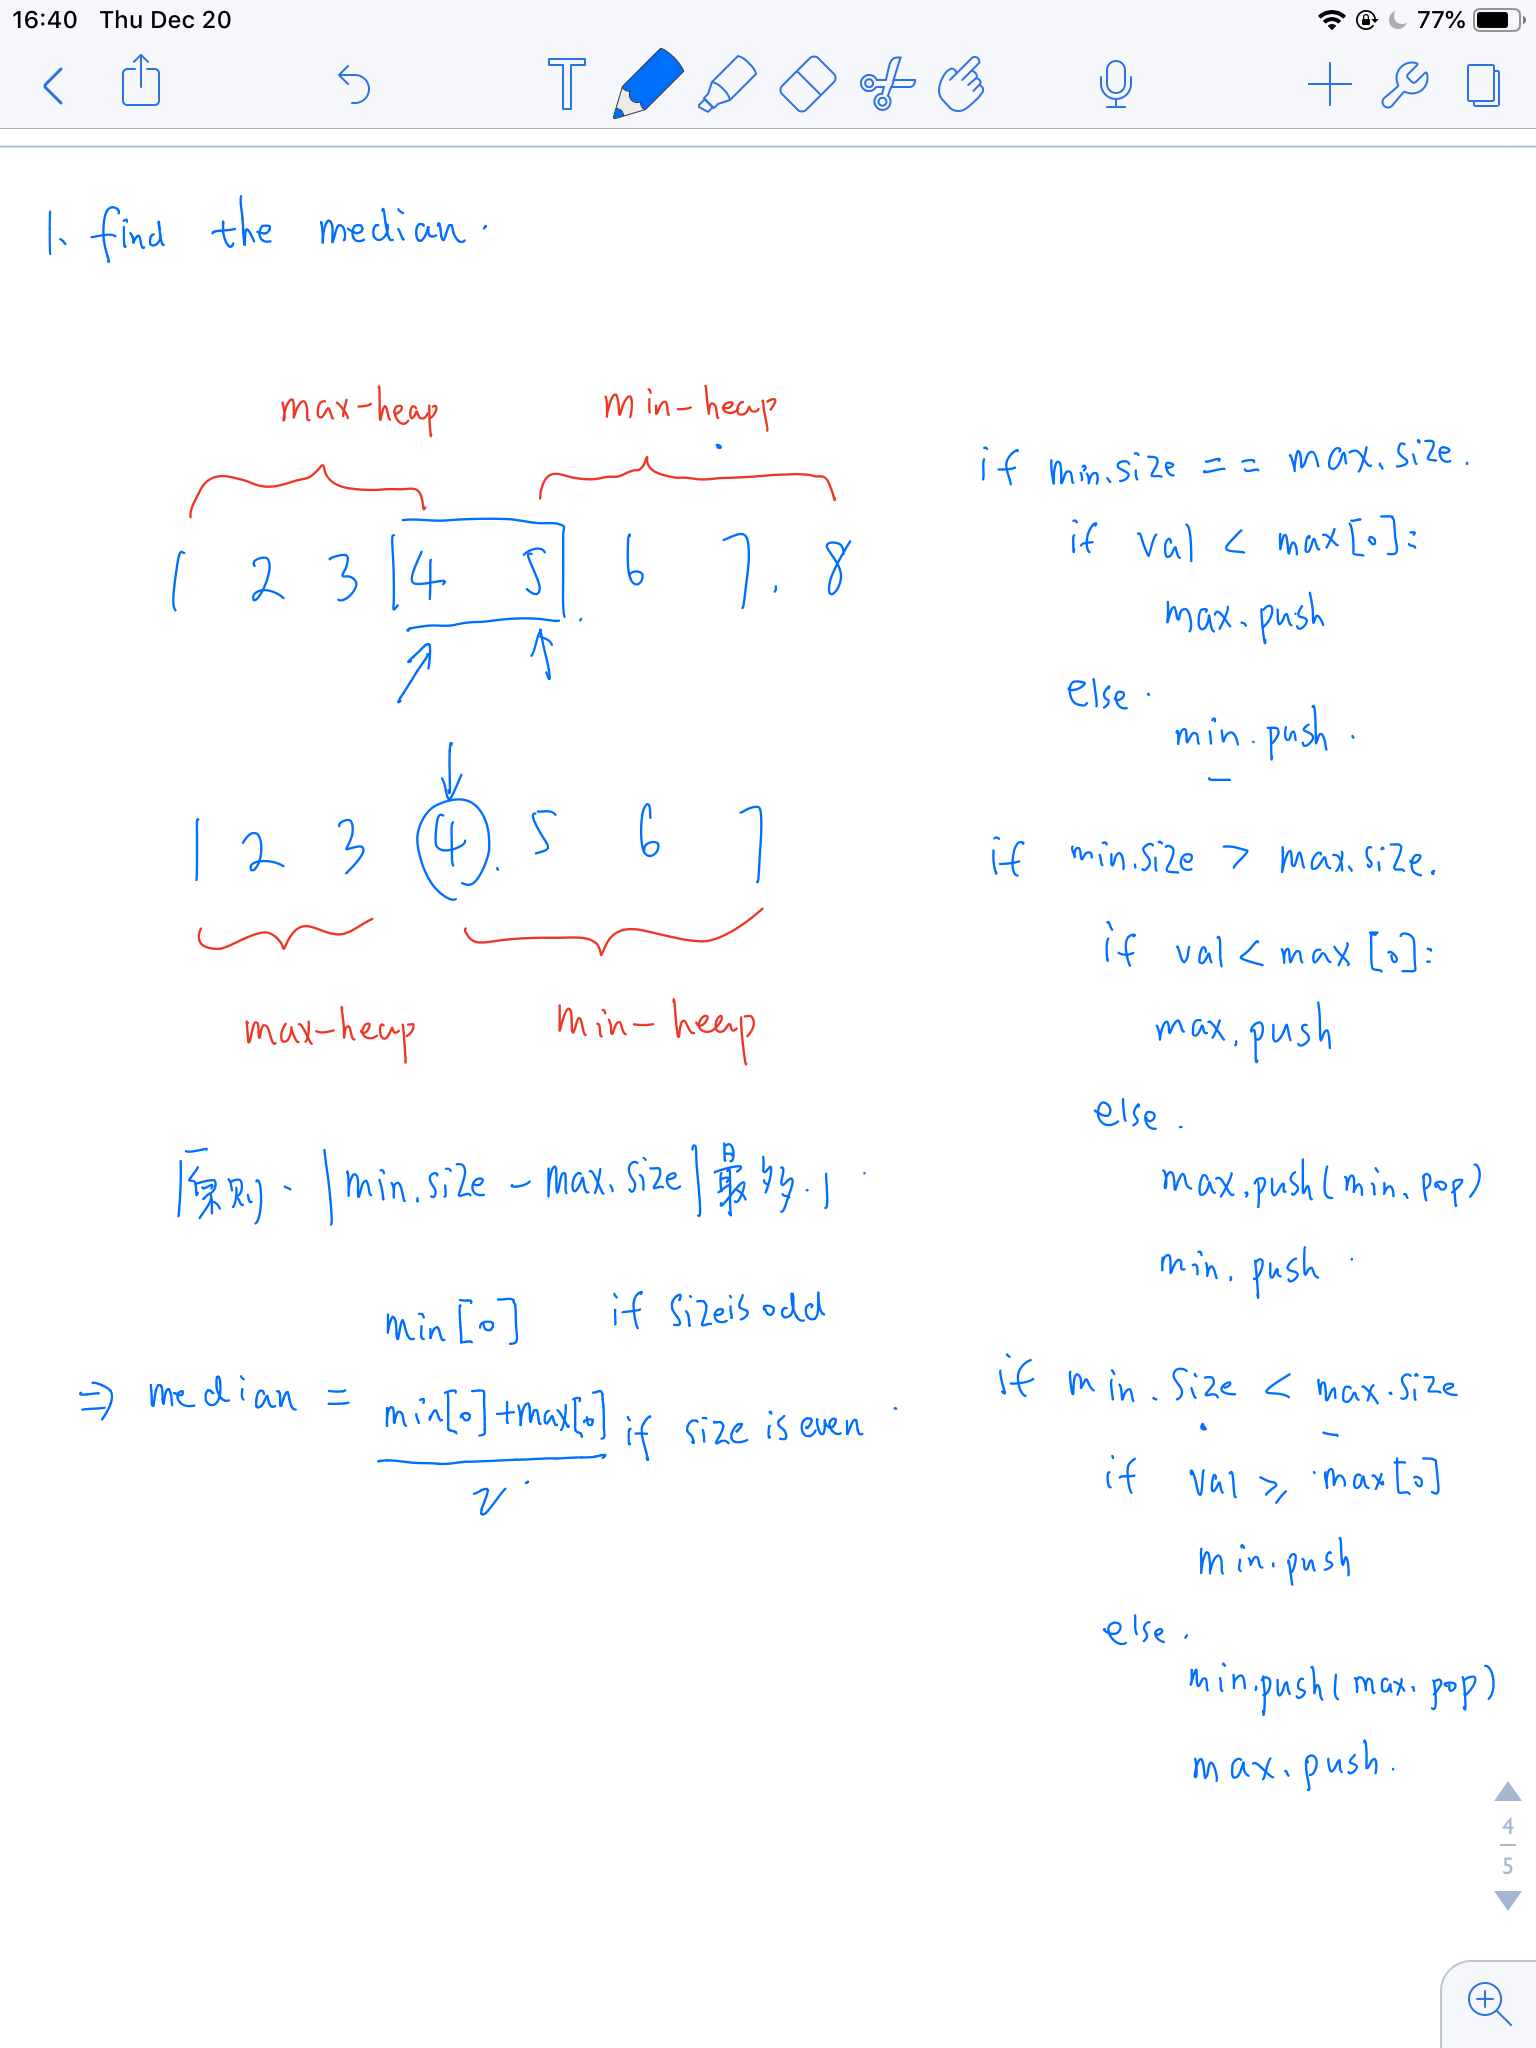 16:40 Thu Dec 20 77%
T
1、find the median.
max-heap min-heap
1 2 3 4 5. 6 7. 8
1 2 3 4. 5 6 7
max-heap min-heap
原则. |min.size - max.size| 最多.1.
min[0] if size is odd
⇒ median =
min[0]+max[0] if size is even.
2
if min.size == max.size.
if val < max[0]:
max.push
else.
min.push.
if min.size > max.size.
if val < max[0]:
max.push
else.
max.push(min.pop)
min.push.
if min.size < max.size
if val ⩾ max[0]
min.push
else.
min.push(max.pop)
max.push.
4
5